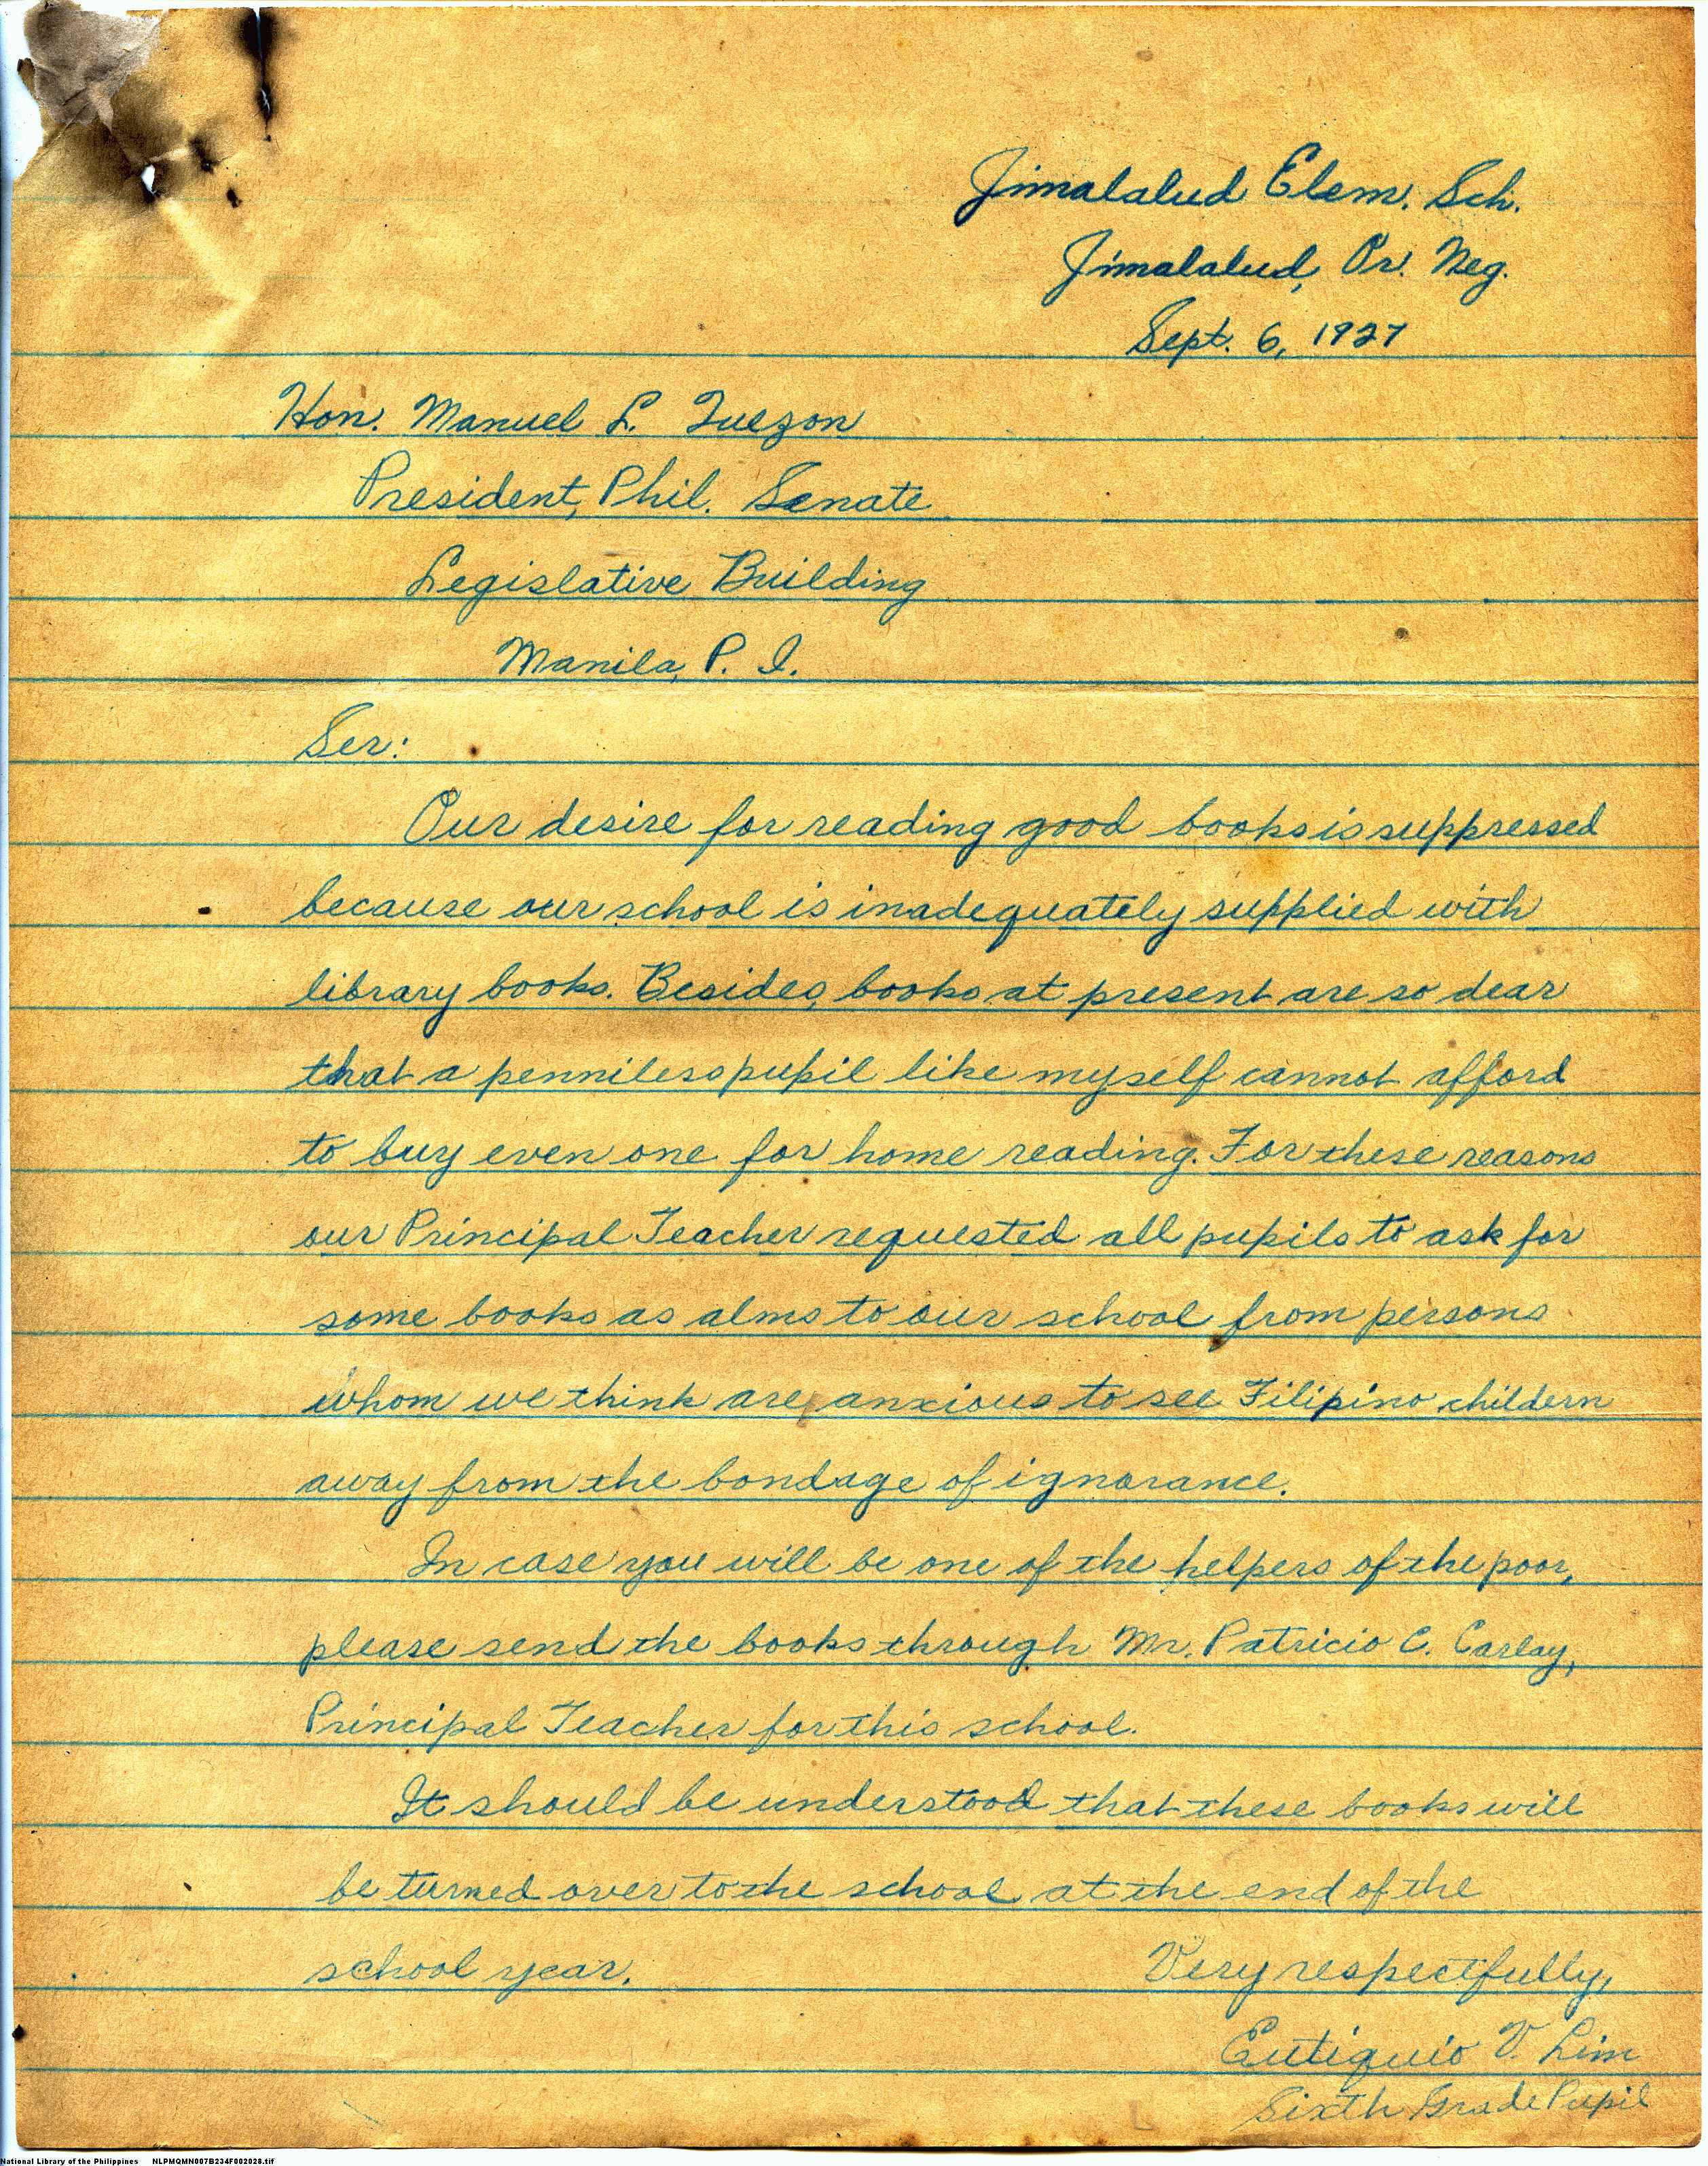 Jimalalud Elem. Sch.
Jimalalud, Or. Neg.
Sept. 6, 1927
Hon. Manuel L. Quezon
President, Phil. Senate
Legislative Building
Manila, P. I.
Ser:
Our desire for reading good books is suppressed
because our school is inadequately supplied with
library books. Besides, books at present are so dear
that a penniless pupil like myself cannot afford
to buy even one for home reading. For these reasons
our Principal Teacher requested all pupils to ask for
some books as alms to our school from persons
whom we think are anxious to see Filipino childern
away from the bondage of ignorance.
In case you will be one of the helpers of the poor,
please send the books through Mr. Patricio C. Carlay,
Principal Teacher for this school.
It should be understood that these books will
be turned over to the school at the end of the
school year.
Very respectfully,
Eutiquio V. Lim
Sixth Grade Pupil
National Library of the Philippines NLPMQMN007B234F002028.tif